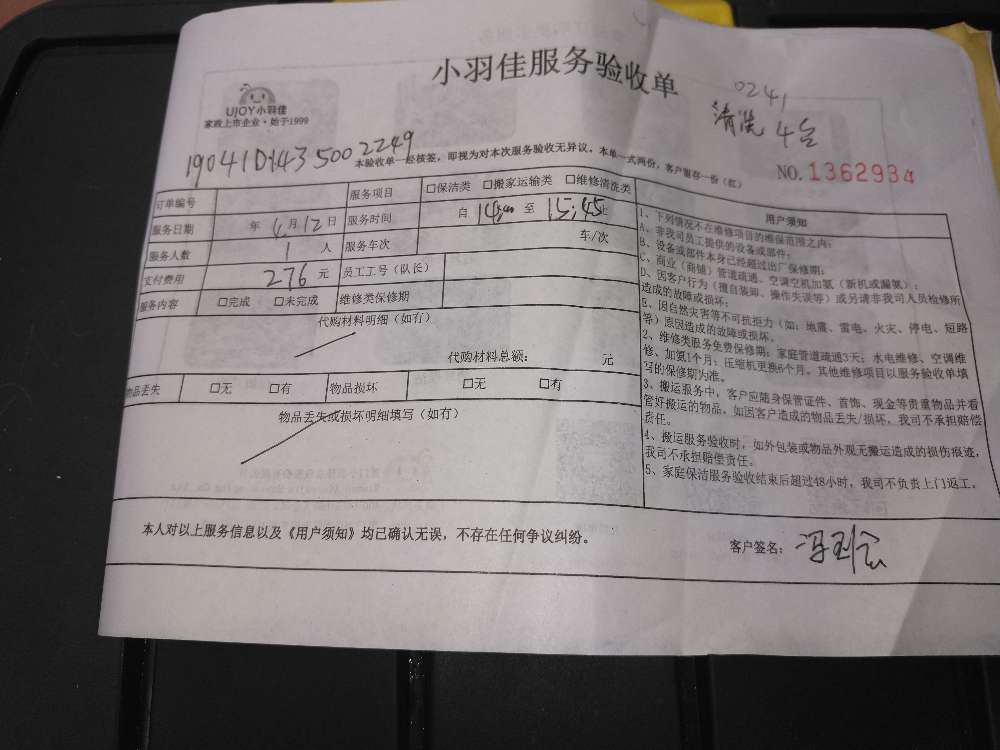 小羽佳服务验收单
UJOY小羽佳
家政上市企业·始于1999
0241
清洗 4台
本验收单一经核签，即视为对本次服务验收无异议，本单一式两份，客户留存一份（红）
NO.1362934
订单编号 服务项目 □保洁类 □搬家运输类 □维修清洗类
服务日期 年 4月12日 服务时间 自 14:00 至 15:45止
服务人数 1 人 服务车次 车/次
支付费用 276 元 员工工号（队长）
服务内容 □完成 □未完成 维修类保修期
代购材料明细（如有）
代购材料总额： 元
物品丢失 □无 □有 物品损坏 □无 □有
物品丢失或损坏明细填写（如有）
用户须知
1、下列情况不在维修项目的维保范围之内：
A、非我司员工提供的设备或部件；
B、设备或部件本身已经超过出厂保修期；
C、商业（商铺）管道疏通、空调空机加氨（新机或漏氨）；
D、因客户行为（擅自装卸、操作失误等）或另请非我司人员检修所
造成的故障或损坏；
E、因自然灾害等不可抗拒力（如：地震、雷电、火灾、停电、短路
等）原因造成的故障或损坏。
2、维修类服务免费保修期：家庭管道疏通3天；水电维修、空调维
修、加氨1个月；压缩机更换6个月。其他维修项目以服务验收单填
写的保修期为准。
3、搬运服务中，客户应随身保管证件、首饰、现金等贵重物品并看
管好搬运的物品，如因客户造成的物品丢失/损坏，我司不承担赔偿
责任。
4、搬运服务验收时，如外包装或物品外观无搬运造成的损伤痕迹，
我司不承担赔偿责任。
5、家庭保洁服务验收结束后超过48小时，我司不负责上门返工。
本人对以上服务信息以及《用户须知》均已确认无误，不存在任何争议纠纷。
客户签名：